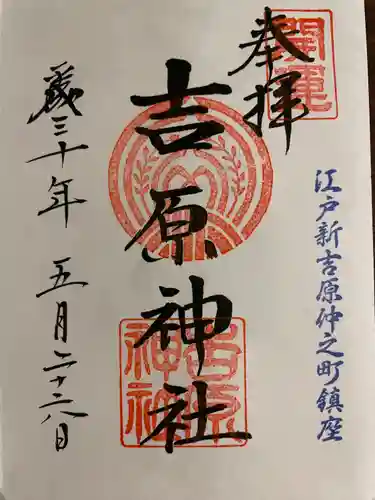 奉拝
開運
江戸新吉原仲之町鎮座
吉原神社
吉原神社
三十年 五月二十六日